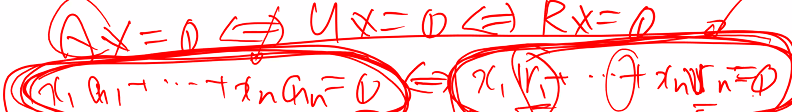 Ax = 0 ⇔ Ux = 0 ⇔ Rx = 0
x₁a₁ + ⋯ + xₙaₙ = 0 ⇔ x₁r₁ + ⋯ + xₙrₙ = 0